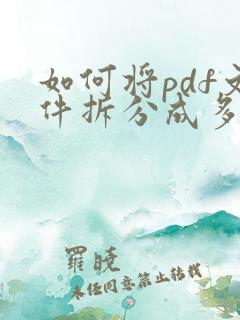 如何将pdf文
件拆分成多
羅曉
未经同意禁止转载